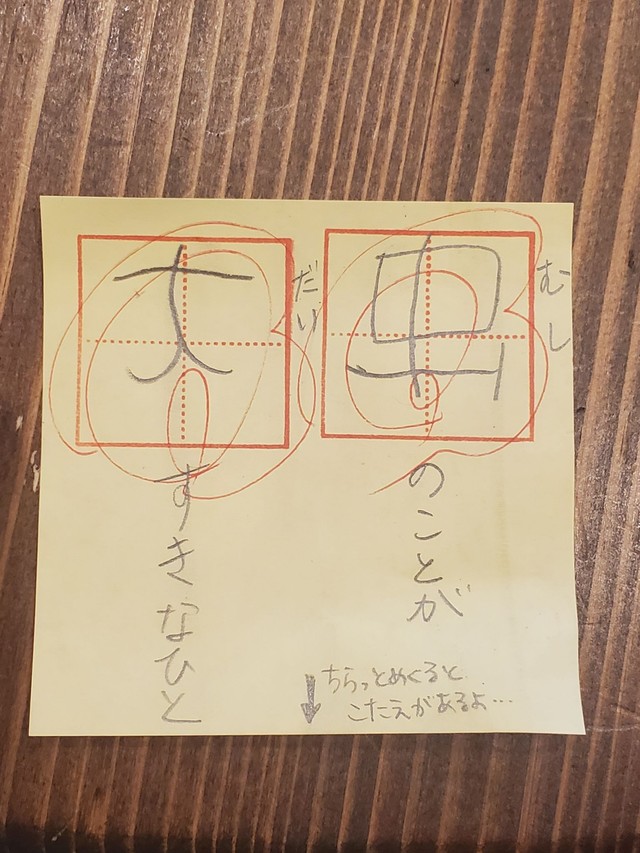 むし
虫のことが
だい
大すきなひと
ちらっとめくると
こたえがあるよ…